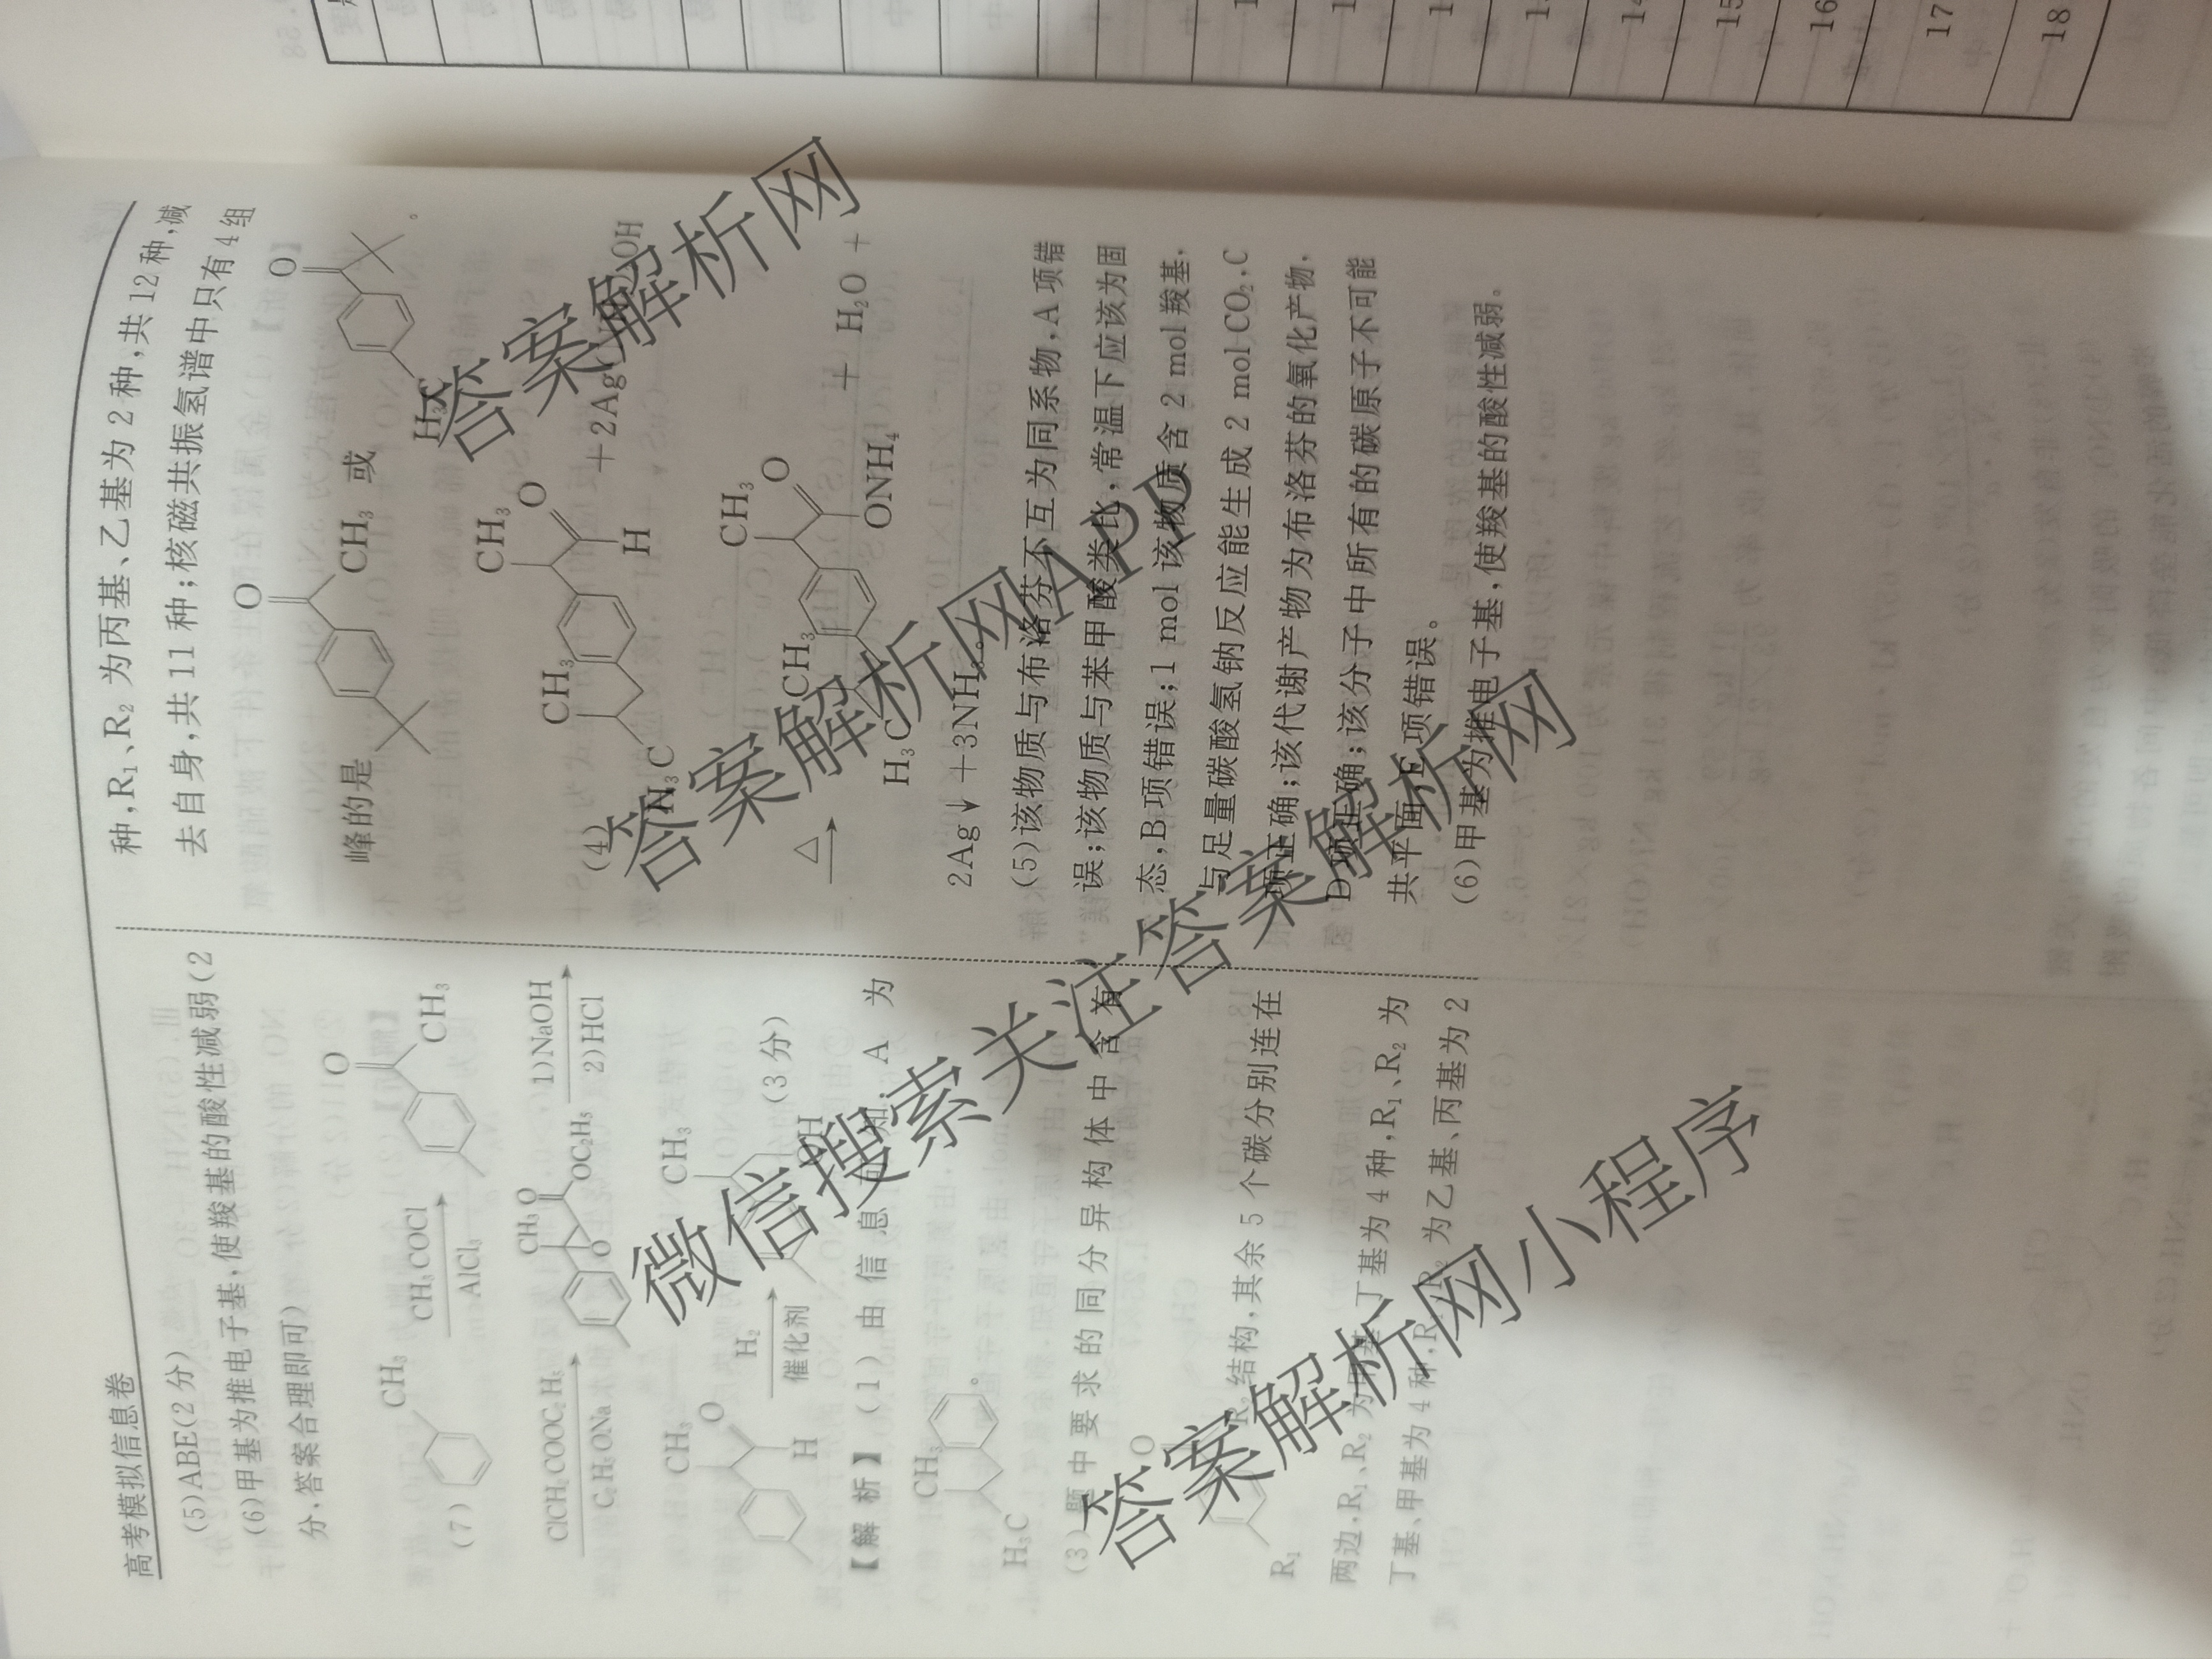 高考模拟信息卷
(5)ABE(2分)
(6)甲基为推电子基,使羧基的酸性减弱(2
分,答案合理即可)
(7)
CH₃
CH₃COCl
AlCl₃
O
CH₃
ClCH₂COOC₂H₅
C₂H₅ONa
CH₃ O
O
OC₂H₅
1)NaOH
2)HCl
CH₃
O
H
H₂
催化剂
CH₃
OH
(3分)
【解析】(1)由信息可知,A为
CH₃
H₃C
。
(3)题中要求的同分异构体中含有
O
R₁
R₂结构,其余5个碳分别连在
两边,R₁、R₂为甲基、丁基为4种,R₁、R₂为
丁基、甲基为4种,R₁、R₂为乙基、丙基为2
种,R₁、R₂为丙基、乙基为2种,共12种,减
去自身,共11种;核磁共振氢谱中只有4组
峰的是
O
CH₃
或
H₃C
O
。
(4)
CH₃
H₃C
CH₃
O
H
+2Ag
OH
△
CH₃
H₃C
CH₃
O
ONH₄
+ H₂O +
2Ag↓+3NH₃。
(5)该物质与布洛芬不互为同系物,A项错
误;该物质与苯甲酸类比,常温下应该为固
态,B项错误;1 mol该物质含2 mol羧基,
与足量碳酸氢钠反应能生成2 mol CO₂,C
项正确;该代谢产物为布洛芬的氧化产物,
D项正确;该分子中所有的碳原子不可能
共平面,E项错误。
(6)甲基为推电子基,使羧基的酸性减弱。
14
15
16
17
18
答案解析网
答案解析网APP
微信搜索关注答案解析网
答案解析网小程序